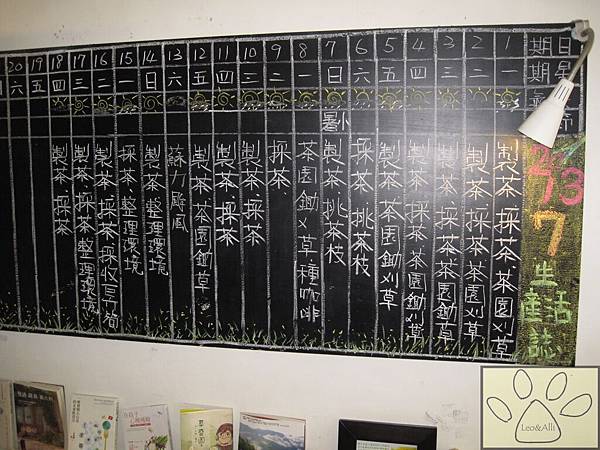 日期 1 2 3 4 5 6 7 8 9 10 11 12 13 14 15 16 17 18 19 20
星期 一 二 三 四 五 六 日 一 二 三 四 五 六 日 一 二 三 四 五 六
小暑
2013
7
生活
產誌
製茶.採茶.茶園刈草
製茶.採茶.茶園鋤刈草
製茶.採茶.茶園鋤草
製茶.採茶.茶園鋤刈草
製茶.茶園鋤刈草
採茶.挑茶枝
製茶.挑茶枝
茶園鋤刈草.種咖啡
採茶.
製茶.採茶
製茶.採茶
製茶.茶園鋤草
蘇力颱風
製茶.整理環境
採茶.整理環境
製茶.採茶.採收
製茶.採茶.整理環境
製茶.採茶
Leo&Alli